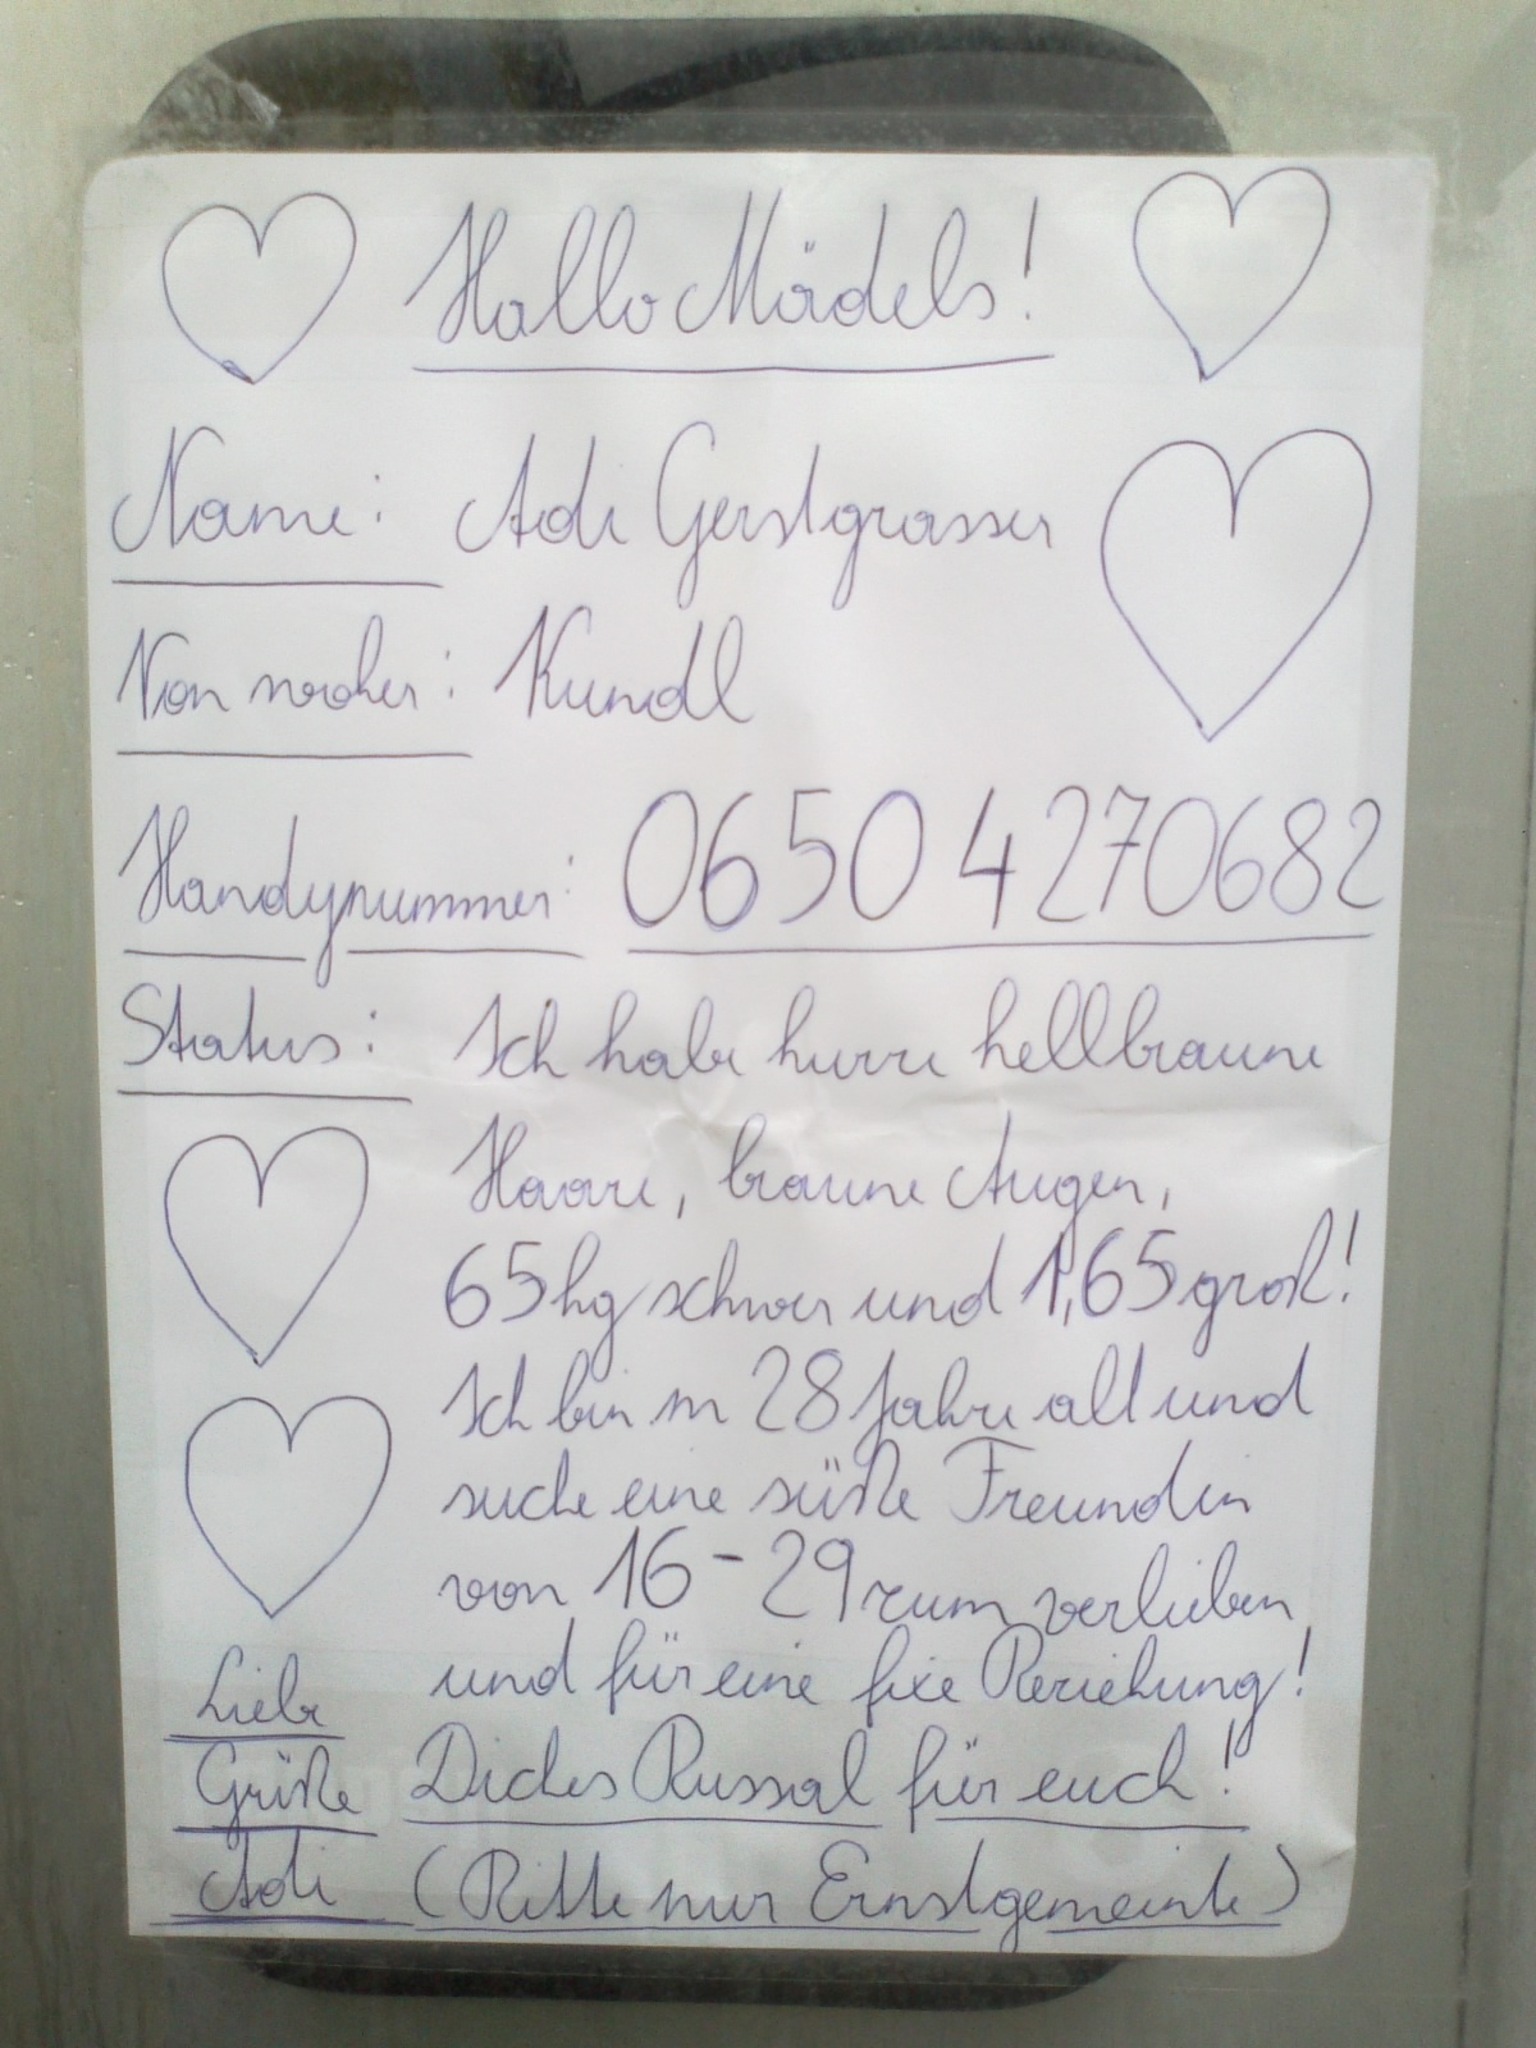 Hallo Mädels!
Name: Adi Gerstgrasser
Von woher: Kundl
Handynummer: 0650 4270682
Status: Ich habe kurze hellbraune
Haare, braune Augen,
65kg schwer und 1,65 groß!
Ich bin m 28 Jahre alt und
suche eine süße Freundin
von 16-29 zum verlieben
und für eine fixe Beziehung!
Dickes Bussal für euch!
(Bitte nur Ernstgemeinte)
Liebe
Grüße
Adi